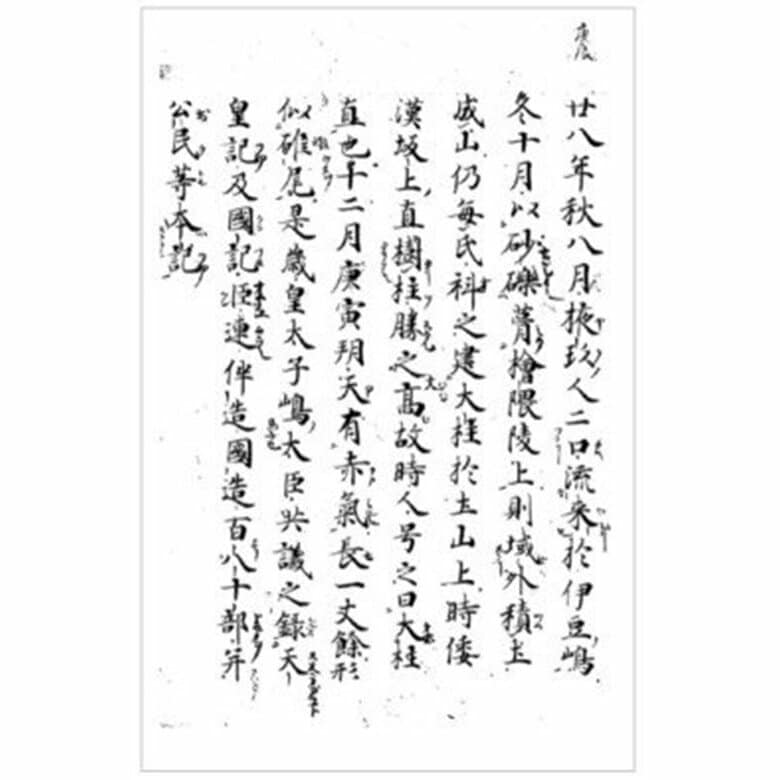 庚辰
廿八年秋八月掖玖人二口流来於伊豆嶋
冬十月以砂礫葺檜隈陵上則域外積土
成山仍毎氏科之建大柱於土山上時倭
漢坂上直樹柱勝之太高故時人号之曰大柱
直也十二月庚寅朔天有赤氣長一丈餘形
似雉尾是歳皇太子嶋太臣共議之録天
皇記及國記臣連伴造國造百八十部并
公民等本記